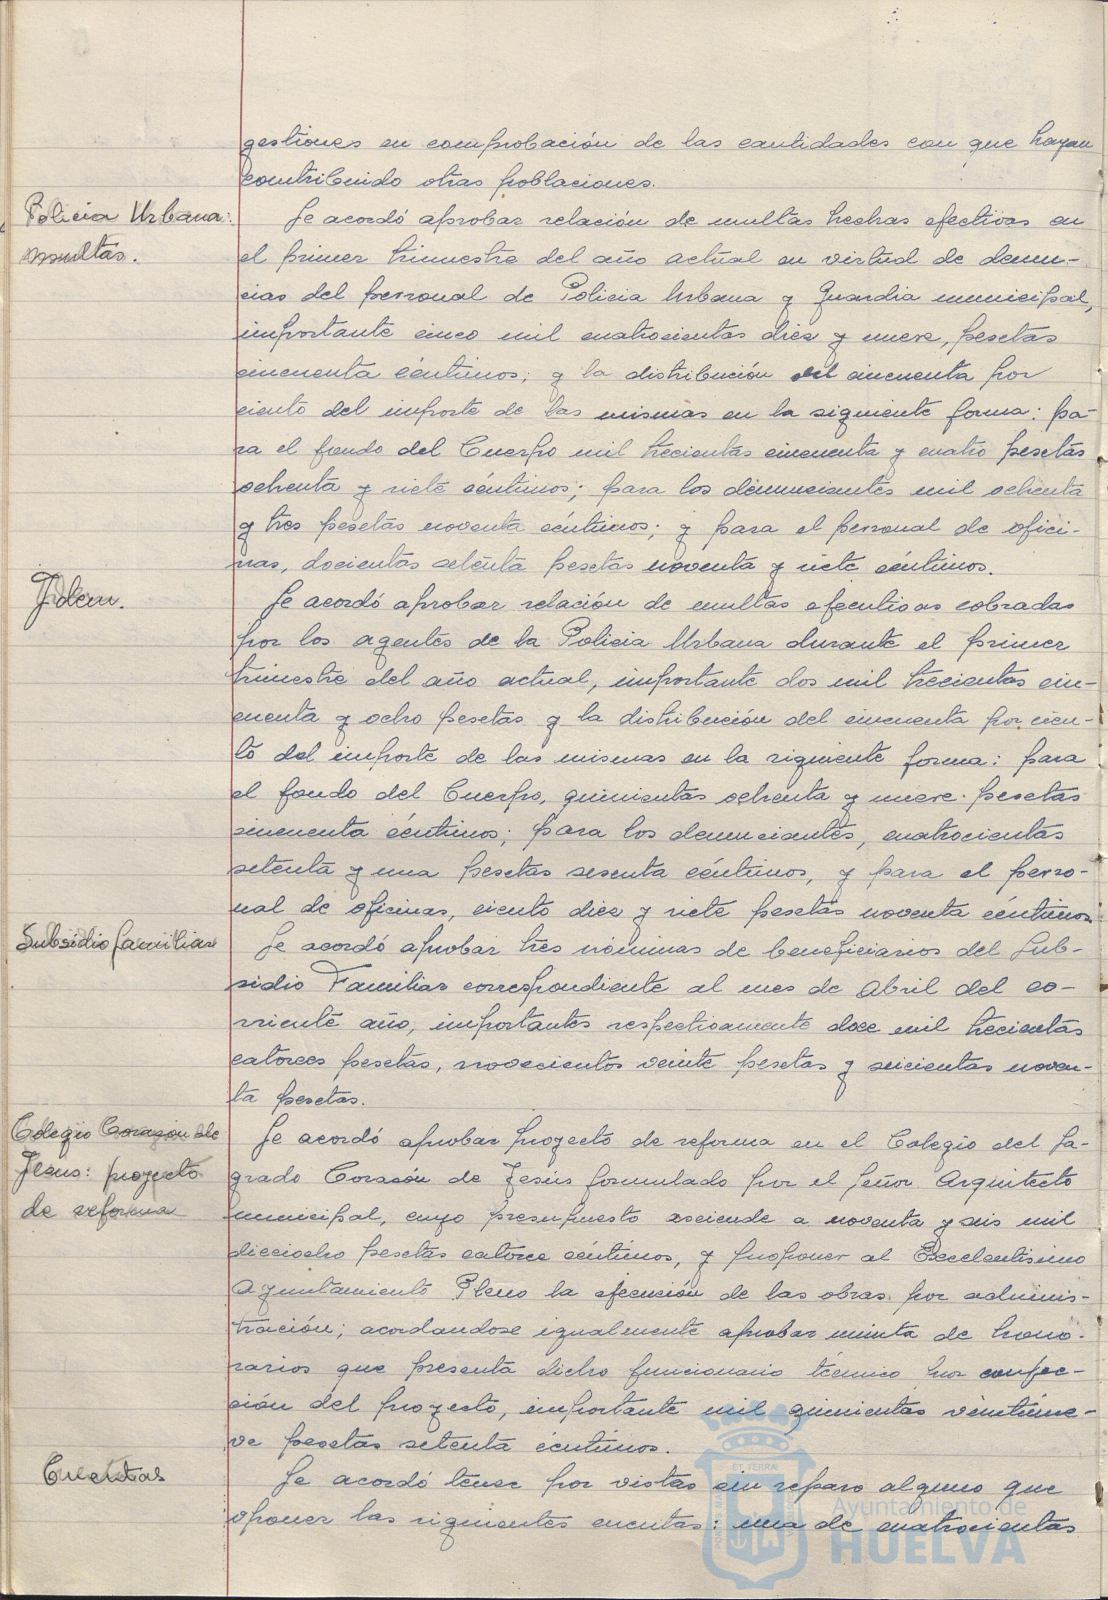 gestiones en comprobación de las cantidades con que hayan
contribuido otras poblaciones.
Policia Urbana:
multas.
Se acordó aprobar relación de multas hechas efectivas en
el primer trimestre del año actual en virtud de denun-
cias del personal de Policia Urbana y Guardia municipal,
importante cinco mil cuatrocientas diez y nueve, pesetas
cincuenta céntimos; y la distribución del cincuenta por
ciento del importe de las mismas en la siguiente forma: pa-
ra el fondo del Cuerpo mil trecientas cincuenta y cuatro pesetas
ochenta y siete céntimos; para los denunciantes mil ochenta
y tres pesetas noventa céntimos; y para el personal de ofici-
nas, docientas setenta pesetas noventa y siete céntimos.
Idem.
Se acordó aprobar relación de multas efectivas cobradas
por los agentes de la Policia Urbana durante el primer
trimestre del año actual, importante dos mil trecientas cin-
cuenta y ocho pesetas y la distribución del cincuenta por cien-
to del importe de las mismas en la siguiente forma: para
el fondo del Cuerpo, quinientas ochenta y nueve pesetas
cincuenta céntimos; para los denunciantes, cuatrocientas
setenta y una pesetas sesenta céntimos, y para el perso-
nal de oficinas, ciento diez y siete pesetas noventa céntimos.
Subsidio familiar
Se acordó aprobar tres nóminas de beneficiarios del Sub-
sidio Familiar correspondiente al mes de Abril del co-
rriente año, importantes respectivamente doce mil trecientas
catorces pesetas, novecientos veinte pesetas y seicientas noven-
ta pesetas.
Colegio Corazón de
Jesus: proyecto
de reforma
Se acordó aprobar proyecto de reforma en el Colegio del Sa-
grado Corazón de Jesús formulado por el Señor Arquitecto
municipal, cuyo presupuesto asciende a noventa y seis mil
dieciocho pesetas catorce céntimos, y proponer al Excelentisimo
Ayuntamiento Pleno la ejecución de las obras por adminis-
tración; acordandose igualmente aprobar minuta de hono-
rarios que presenta dicho funcionario técnico por confec-
ción del proyecto, importante mil quinientas veintinue-
ve pesetas setenta céntimos.
Cuentas
Se acordó tener por vistas sin reparo alguno que
oponer las siguientes cuentas: una de cuatrocientas
Ayuntamiento de
HUELVA